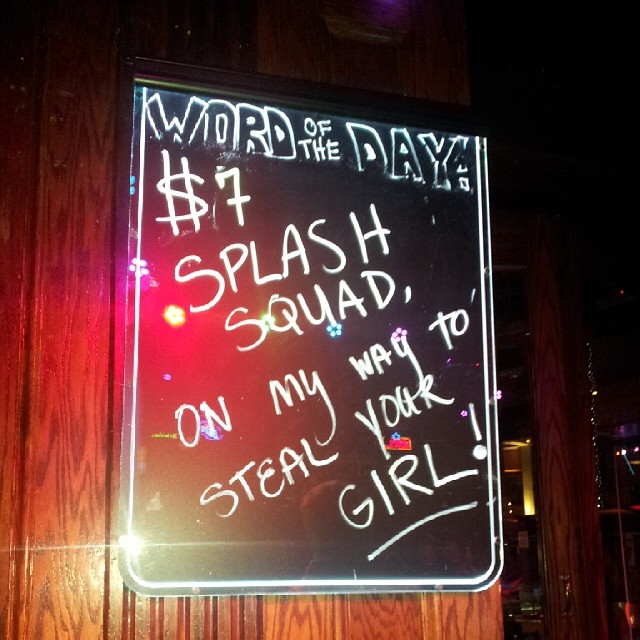 WORD OF THE DAY!
$7
SPLASH
SQUAD,
ON MY WAY TO
STEAL YOUR
GIRL!